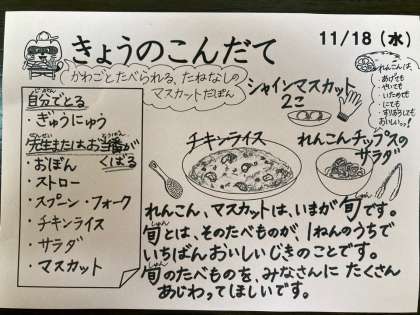 きょうのこんだて
11/18(水)
かわごとたべられる、たねなしの
マスカットだぽん
シャインマスカット
2こ
れんこんは、
あげても
やいても
いためても
にても
すりおろしても
おいしいっ!
じぶん
自分でとる
・ぎゅうにゅう
せんせい とうばん
先生またはお当番が
くばる
・おぼん
・ストロー
・スプーン・フォーク
・チキンライス
・サラダ
・マスカット
チキンライス
れんこんチップスの
サラダ
しゅん
れんこん、マスカットは、いまが旬です。
しゅん
旬とは、そのたべものが、1ねんのうちで
いちばんおいしいじきのことです。
しゅん
旬のたべものを、みなさんに たくさん
あじわってほしいです。